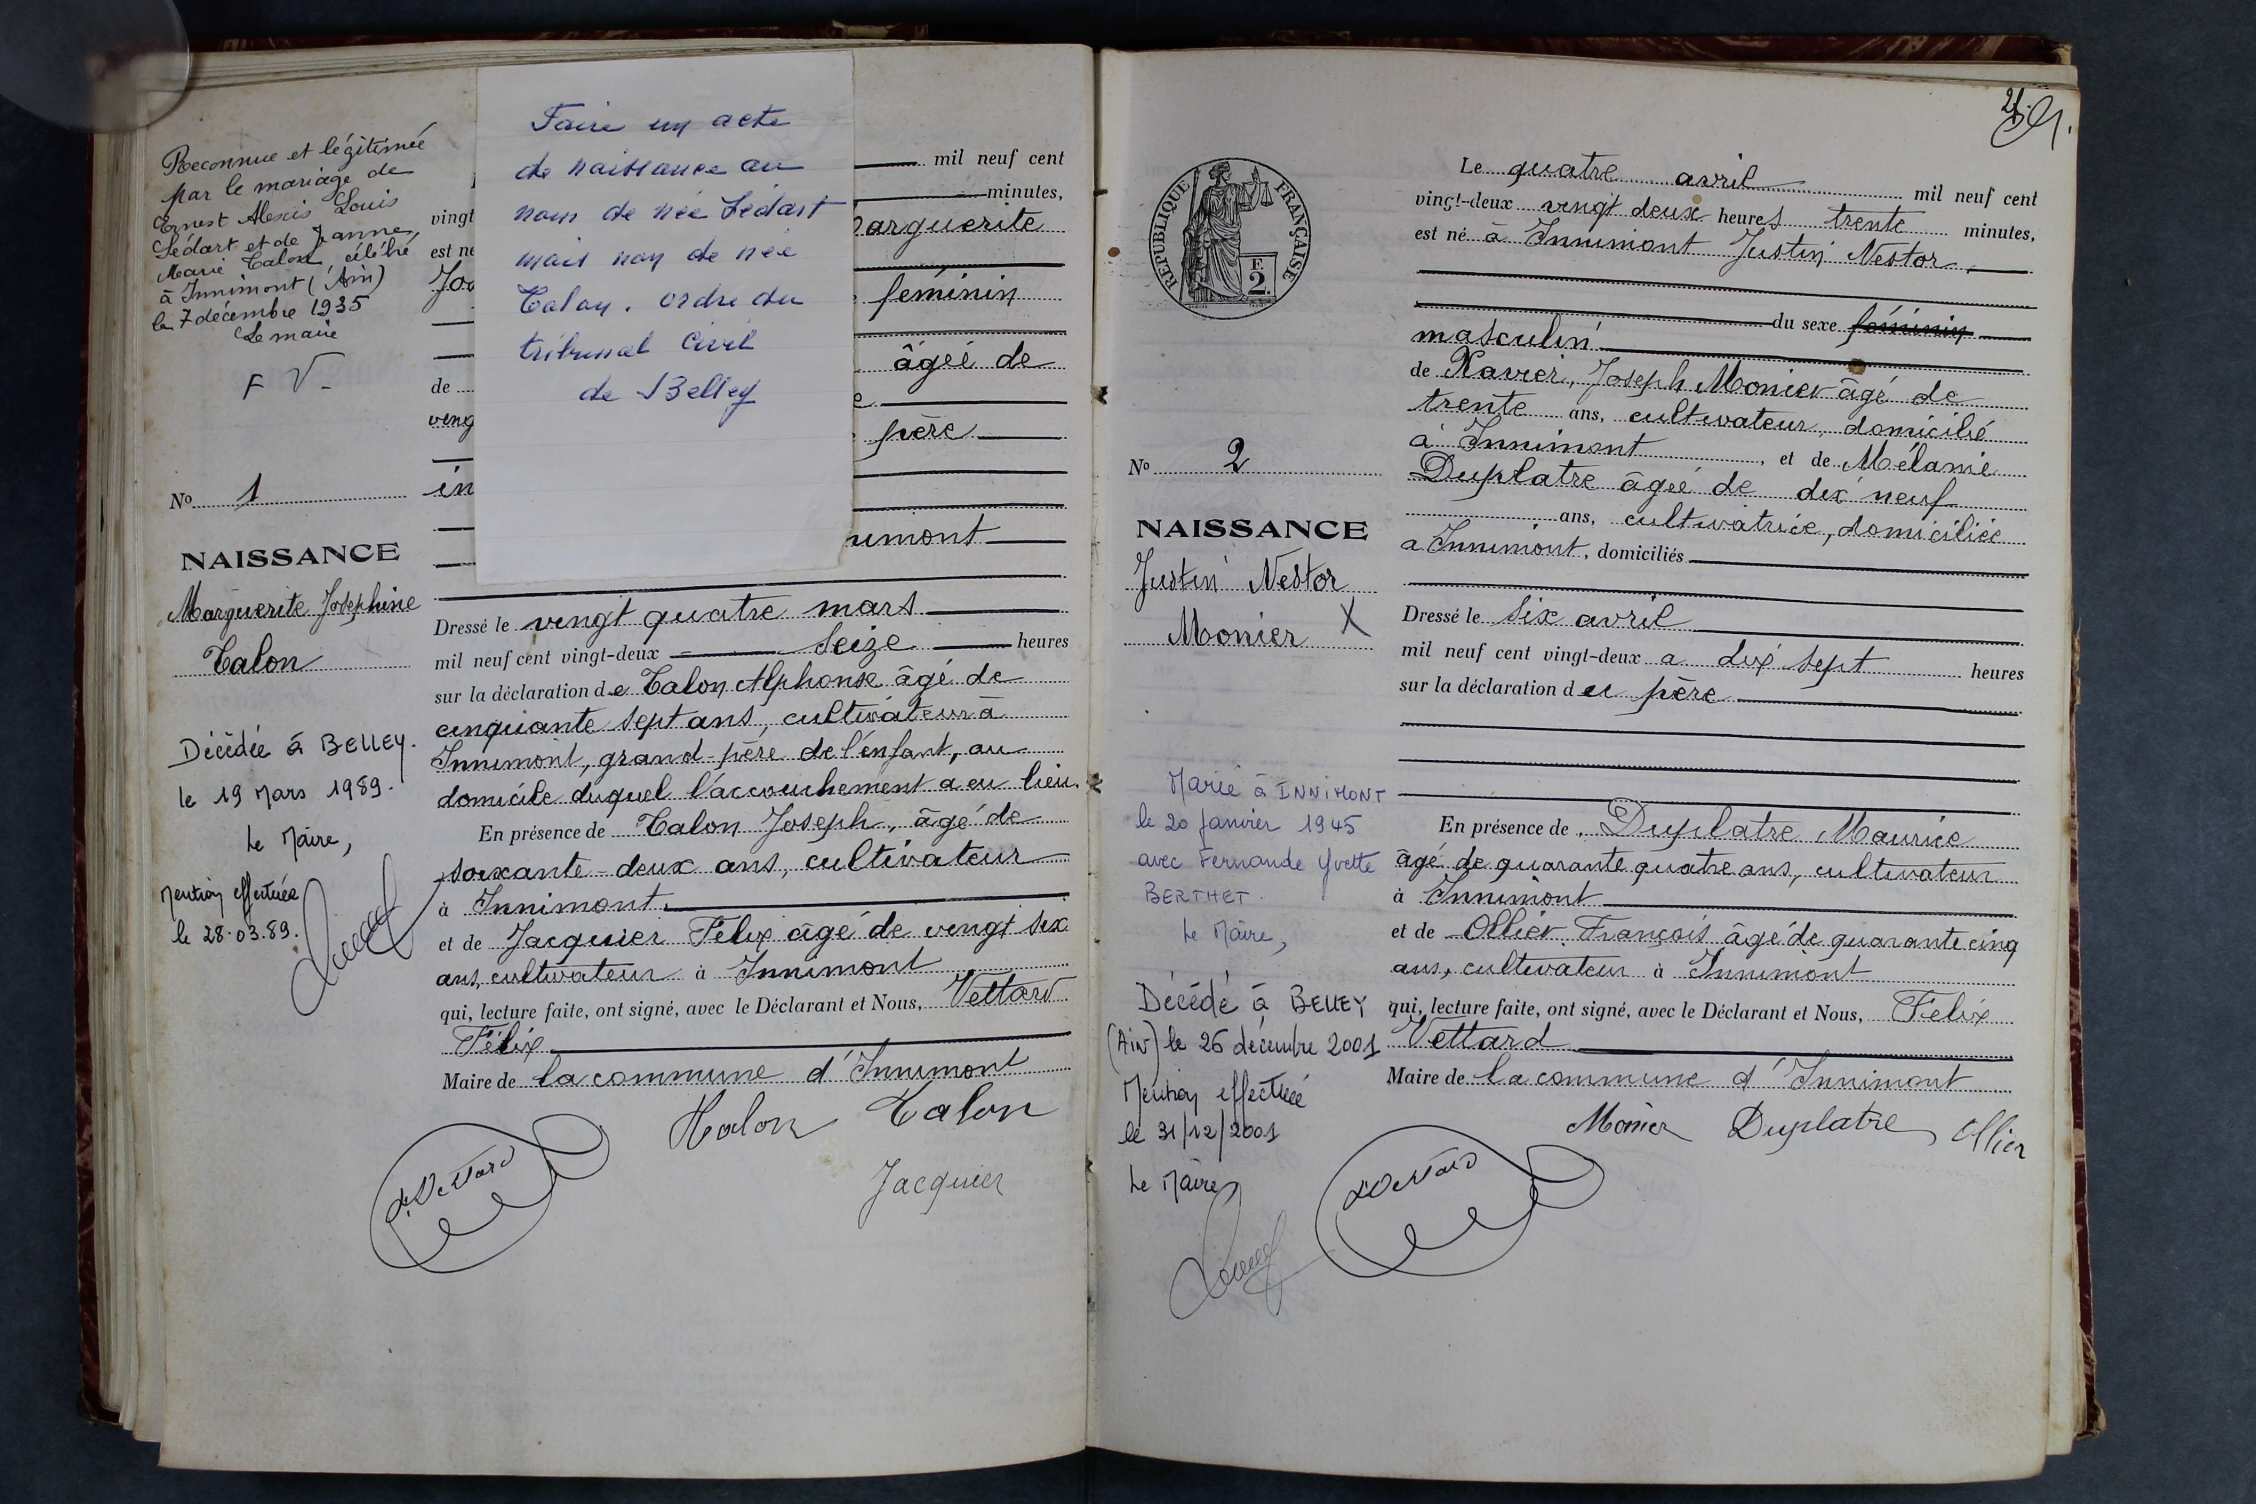 Reconnue et légitimée
par le mariage de
Ernest Alexis Louis
Lédart et de Jeanne,
Marie Talon célébré
à Innimont (Ain)
le 7 décembre 1935
Le maire
F V-
No 1
NAISSANCE
Marguerite Josephine
Talon
Décédée à BELLEY.
le 19 Mars 1989.
Le Maire,
Mention effectuée
le 28.03.89.
Faire un acte
de naissance au
nom de née Lédart
mais non de née
Talon. ordre du
tribunal Civil
de Belley
mil neuf cent
minutes,
vingt
arguerite
est né
Jo
féminin
âgée de
de
ving
père
in
nimont
Dressé le vingt quatre mars
mil neuf cent vingt-deux seize heures
sur la déclaration de Talon Alphonse âgé de
cinquante sept ans, cultivateur à
Innimont, grand-père de l'enfant, au
domicile duquel l'accouchement a eu lieu.
En présence de Talon Joseph, âgé de
soixante-deux ans, cultivateur
à Innimont.
et de Jacquier Félix âgé de vingt six
ans, cultivateur à Innimont
qui, lecture faite, ont signé, avec le Déclarant et Nous, Vettard
Félix
Maire de la commune d'Innimont
Talon Talon
Vettard
Jacquier
21.
RÉPUBLIQUE FRANÇAISE
F.
2.
No 2
NAISSANCE
Justin Nestor
Monier X
Marié à INNIMONT
le 20 janvier 1945
avec Fernande Yvette
BERTHET.
Le Maire,
Décédé à BELLEY
(Ain) le 26 décembre 2001
Mention effectuée
le 31/12/2001
Le Maire
Le quatre avril mil neuf cent
vingt-deux vingt deux heures trente minutes,
est né à Innimont Justin Nestor,
du sexe féminin
masculin
de Xavier, Joseph Monier âgé de
trente ans, cultivateur, domicilié
à Innimont, et de Mélanie
Duplatre âgée de dix neuf
ans, cultivatrice, domiciliée
a Innimont, domiciliés
Dressé le six avril
mil neuf cent vingt-deux a dix sept heures
sur la déclaration du père
En présence de Duplatre Maurice
âgé de quarante quatre ans, cultivateur
à Innimont
et de Ollier François âgé de quarante cinq
ans, cultivateur à Innimont
qui, lecture faite, ont signé, avec le Déclarant et Nous, Félix
Vettard
Maire de la commune d'Innimont
Monier Duplatre Ollier
Vettard